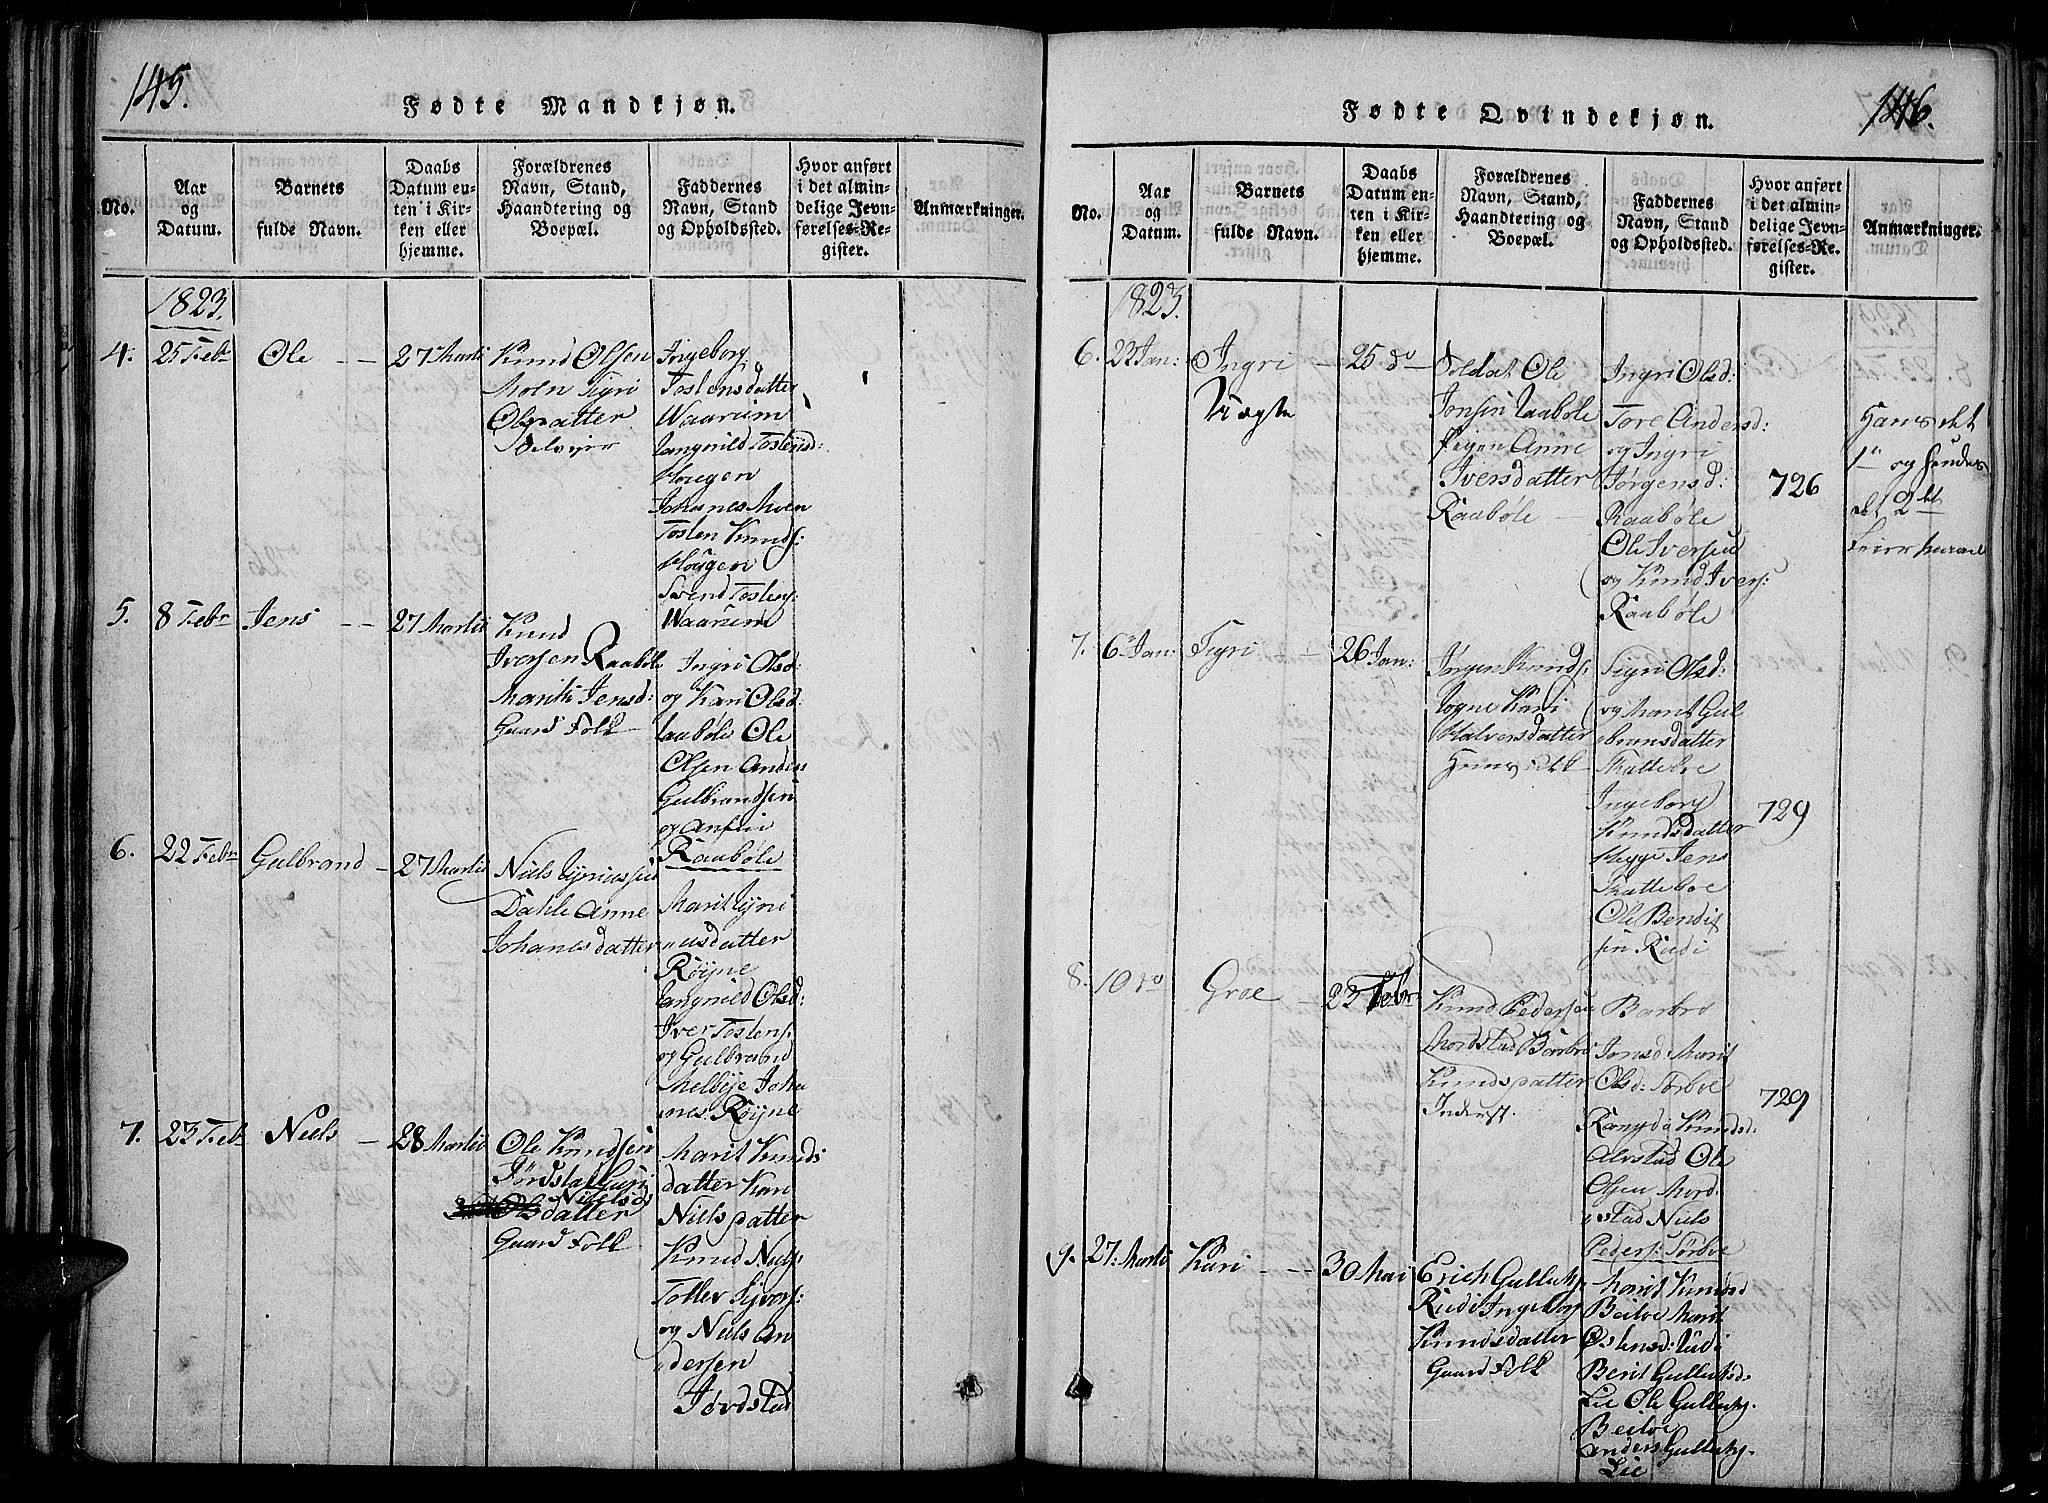 145.
Fødte Mandkjøn.
No.
Aar
og
Datum.
Barnets
fulde Navn.
Daabs
Datum en-
ten i Kir-
ken eller
hjemme.
Forældrenes
Navn, Stand,
Haandtering og
Boepæl.
Faddernes
Navn, Stand
og Opholdssted.
Hvor anført
i det almin-
delige Jevn-
førelses-Re-
gister.
Anmærkninger.
1823.
4. 25 Febr Ole 27 Martii
Knud Olsen
Moen Sigri
Olsdatter
Ingeborg
Tostensdatter
Waarum
Tostensd:
Haugen
Johanes Moen
Tosten Knuds:
Høygen
Svend Tostens:
Waarum
5. 8 Febr Jens 27 Martii
Knud
Iversen Raabøle
Marithe Jensd:
Gaard Folk
Ingri Olsd:
og Kari Olsd:
Raabøle Ole
Olsen
Gulbrandsen
og
Raabøle
6. 22 Febr Gulbrand 27 Martii
Niels
Dahle Anne
Johanesdatter
Marit
usdatter
Røyne
Olsd:
Iver Tostens:
og Gulbrand
Melbye Joha
nes Røyne
7. 23 Feb Niels 28 Martii
Ole Knudsen
Jørdstad
Nielsd
datter
Gaard Folk
Marit Knuds
datter Kari
Nielsdatter
Knud Niels:
Tollev Syvers:
og Niels An
dersen
Jørdstad
146.
Fødte Qvindekjøn.
No.
Aar
og
Datum.
Barnets
fulde Navn.
Daabs
Datum en-
ten i Kir-
ken eller
hjemme.
Forældrenes
Navn, Stand,
Haandtering og
Boepæl.
Faddernes
Navn, Stand
og Opholdssted.
Hvor anført
i det almin-
delige Jevn-
førelses-Re-
gister.
Anmærkninger.
1823.
6. 23 Jan: Ingri 25 do
Uægte
Soldat Ole
Jonsen Raabøle
Pigen Anne
Iversdatter
Raabøle
Ingri Olsd:
Tore Andersd:
og Ingri
Jørgensd:
Raabøle
Ole Iversen
og Knud Ivers:
Raabøle
726
Hans det
1te og Hendes
det 2det
7. 6 Jan: Sigri 26 Jan:
Jørgen Knuds:
Kari
Halvorsdatter
Sigri Olsd:
og Marit Gul
bransdatter
Skatteboe
Ingeborg
Knudsdatter
Hegge Jens
Skatteboe
Ole Bendix
sen Rudi
729
8. 10 do Groe 23 Febr
Knud Pedersen
Mordstad Barbro
Knudsdatter
Inderst.
Barbro
Jonsd: Marit
Olsd: Sørboe
Rangdi Knudsd.
Alvstad Ole
Olsen Mord
stad Niels
Peders: Sørboe
729
9. 27: Martii Kari 30 Mai
Erich Gulliks
Rudi Ingeborg
Knudsdatter
Gaard Folk
Marit Knudsd
Beitoe Marit
Østensd: Rudi
Berit Gulliksd.
Lie Ole Gulliks.
Beitoe
Anders Gulliks.
Lie